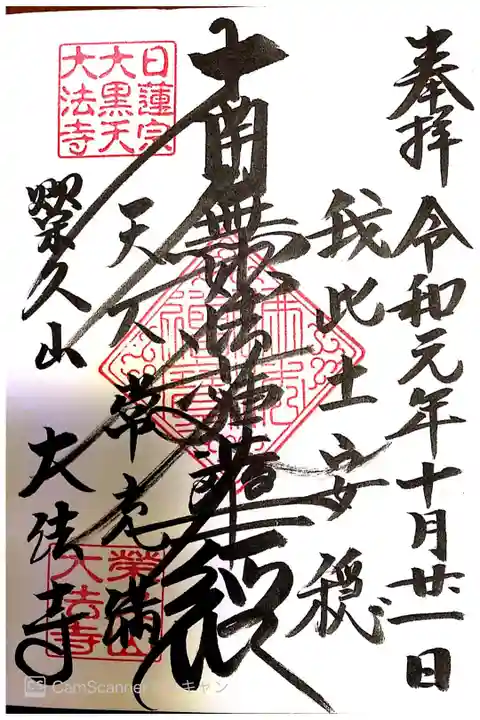 奉拝 令和元年十月廿一日
我此土安穏
南無妙法蓮華経
天人常充満
榮久山 大法寺
日蓮宗
大黒天
大法寺
榮久山
大法寺
CamScanner でスキャン